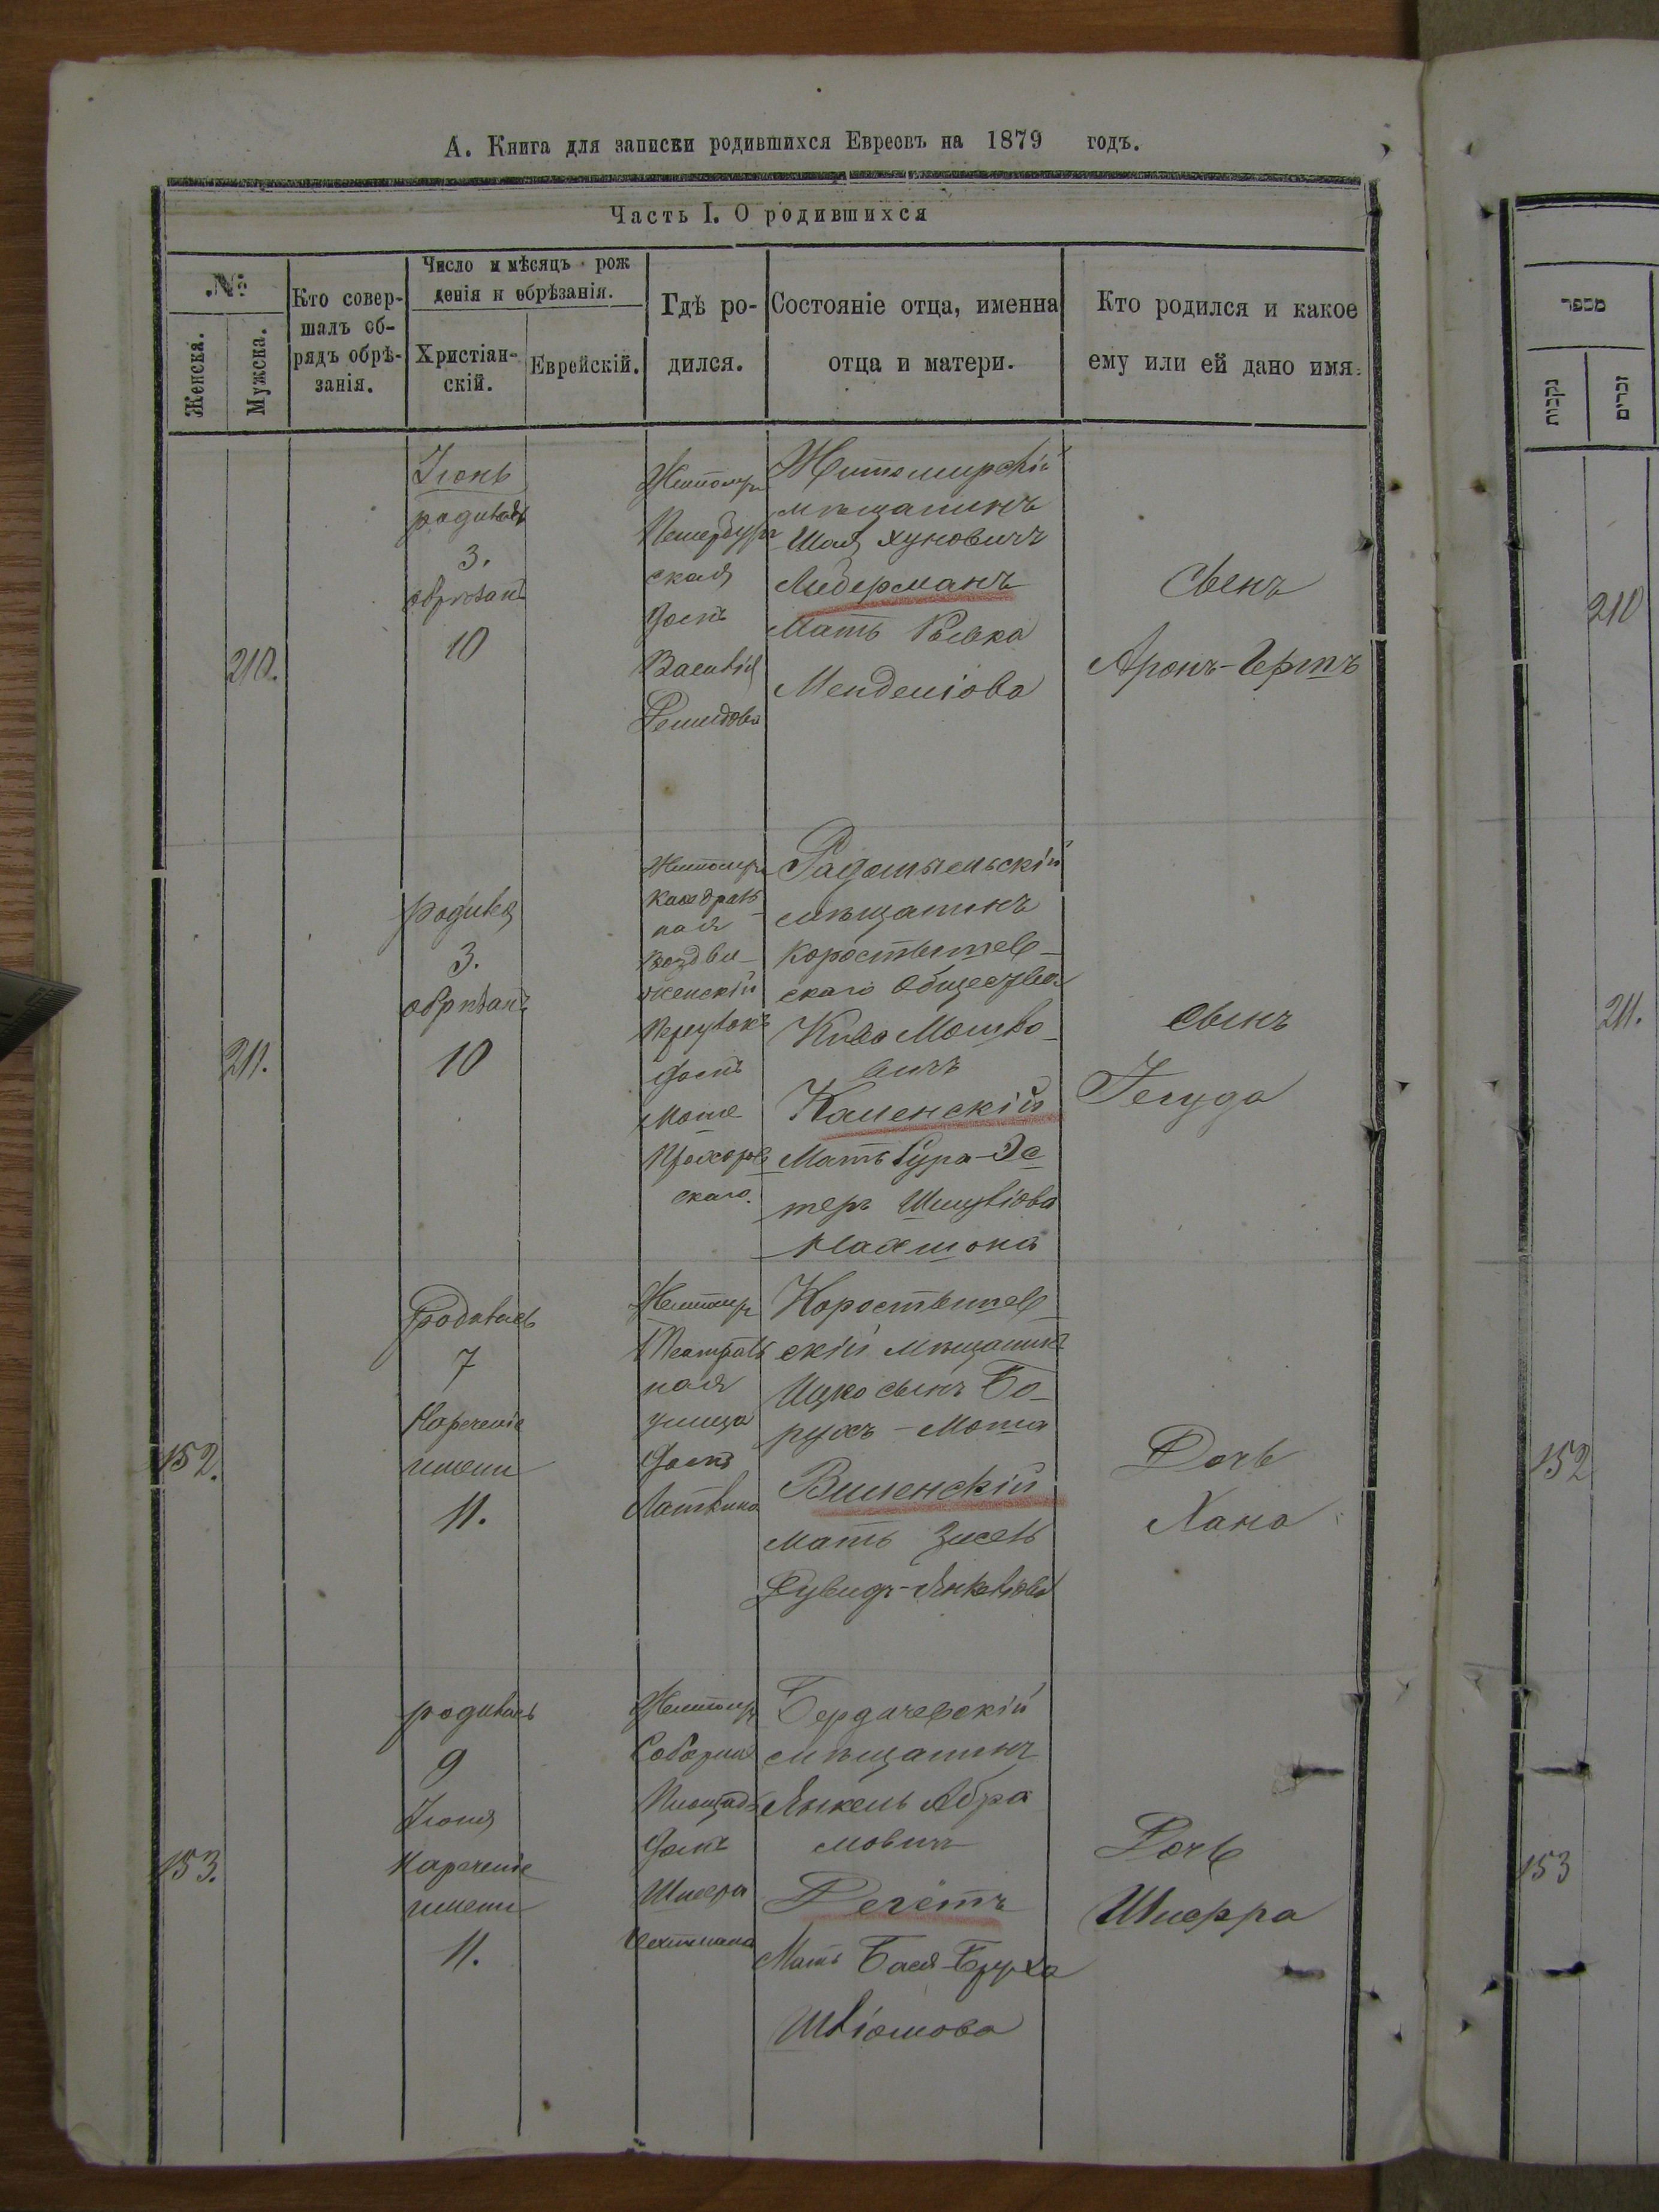 А. Книга для записки родившихся Евреевъ на 1879 годъ.
Часть I. О родившихся
№
Женска.
Мужска.
Кто совер-
шалъ об-
рядъ обрѣ-
занія.
Число и мѣсяцъ рож
денія и обрѣзанія.
Христіан-
скій.
Еврейскій.
Гдѣ ро-
дился.
Состояніе отца, именна
отца и матери.
Кто родился и какое
ему или ей дано имя.
210.
Іюнь
родился
3.
обрѣзанъ
10
Житомиръ
Петербург
ская
домъ
Василія
Житомирскій
мѣщанинъ
Шая Хуновичъ
Либерманъ
Мать Ривка
Менделіова
Сынъ
Аронъ-Герть
211.
родился
3.
обрѣзанъ
10
Житомиръ
Кафедраль
ная
Воздви-
женскій
переулокъ
домъ
скаго.
Радомысльскій
мѣщанинъ
Коростышев-
скаго Общества
Кива Мошко-
вичъ
Каменскій
Мать Сура-Эс
теръ Шмуліова
Сынъ
Іегуда
152.
Родилась
7
Нареченіе
имени
11.
Житомиръ
Театраль
ная
улица
домъ
Коростышев
скій мѣщанинъ
Ицко сынъ Бо-
рухъ-Мота
Виленскій
Мать Зисель
Рувидъ-Янкеліова
Дочь
Хана
153.
родилась
9
Іюня
Нареченіе
имени
11.
Житомиръ
Соборная
Площадь
домъ
Бердичевскій
мѣщанинъ
Янкель Абра
мовичъ
Мать Бася-Бруха
Шліомова
Дочь
Шифра
מספר
נקבות
זכרים
210
211.
152
153